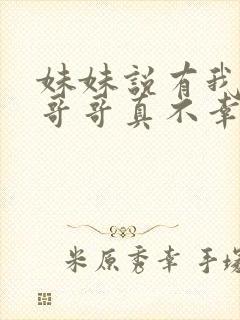 妹妹說有我
哥哥真不幸
米原秀幸 手塚